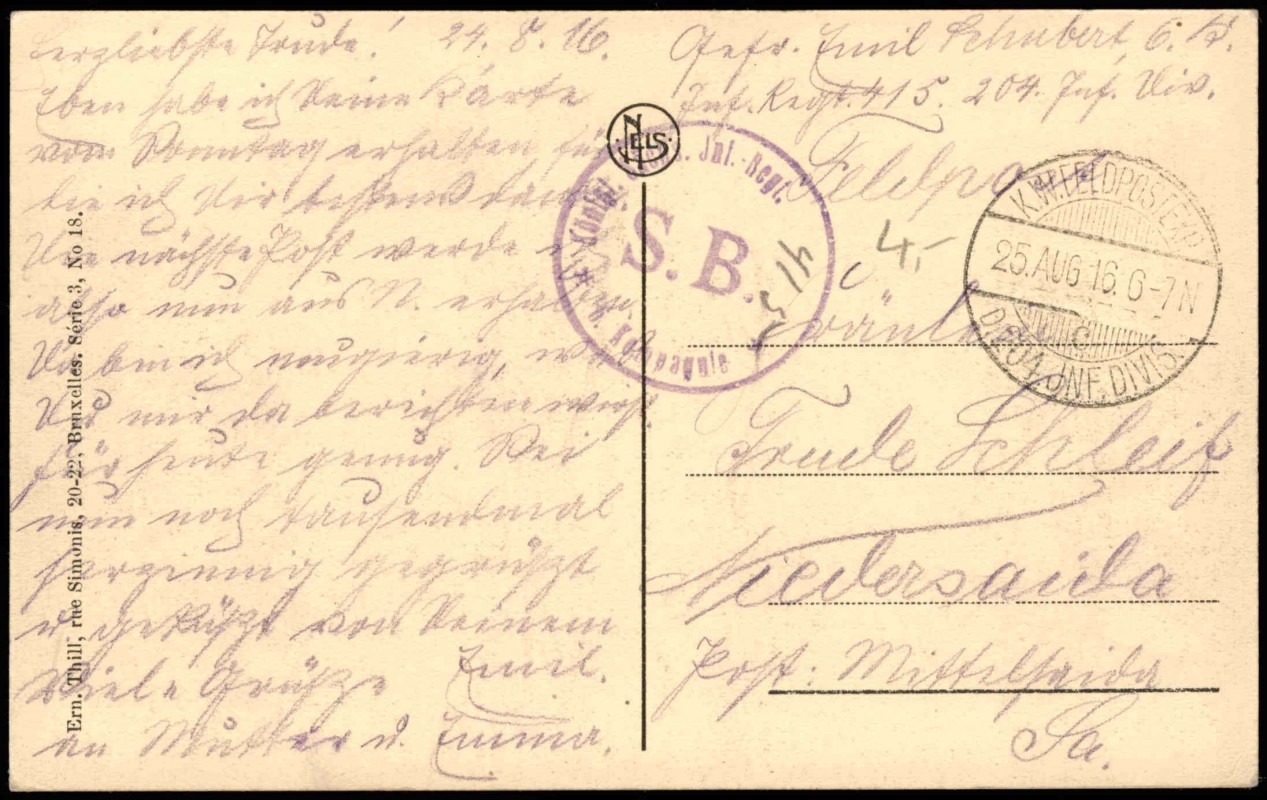 Herzliebste Trude! 24. 8. 16.
Eben habe ich Deine Karte
vom Sonntag erhalten, für
die ich Dir bestens danke.
Die nächste Post werde i
also nun aus N. erhalten.
Da bin ich neugierig, was
Du mir da berichten wirst.
Für heute genug. Sei
nun noch tausendmal
herzinnig gegrüßt
u. geküßt von Deinem
Emil.
Viele Grüße
an Mutter u. Emma.
Ern. Thill, rue Simonis, 20-22, Bruxelles. Série 3, No 18.
NELS
Gefr. Emil Schubert, 6. K.
Inf. Regt. 415. 204. Inf. Div.
Feldpost
Königl. Sächs. Inf.-Regt.
S. B.
415
6. Kompagnie
4,-
K.W.FELDPOSTEXP.
25.AUG 16. 6-7N
c
D.204.INF.DIVIS.
Fräulein
Trude Schleif
Niedersaida
Post: Mittelsaida
Sa.